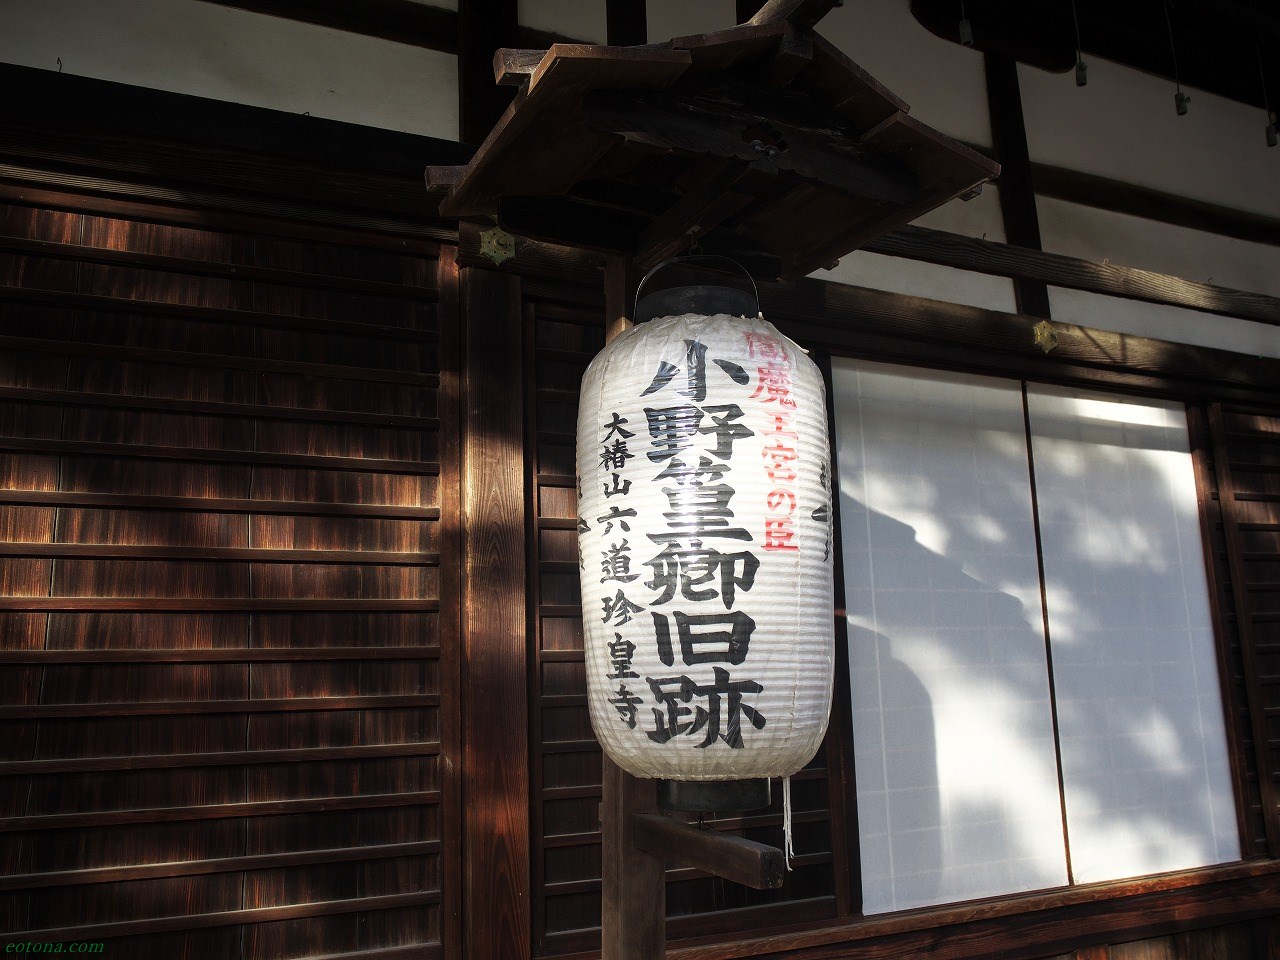 閻魔王宮の臣
小野篁卿旧跡
大椿山六道珍皇寺
eotona.com